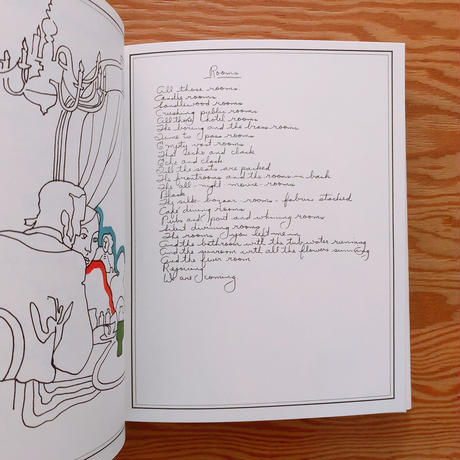 Rooms
All those rooms:
Candle rooms
Sandlewood rooms
Crushing public rooms
All those hotel rooms
The boring and the brass rooms
Time to pass rooms
Empty vast rooms
That echo and clack
Echo and clack
Till the seats are packed
The frontrooms and the rooms in back
The all-night-movie-rooms
Black
The silk-bazaar-rooms-fabrics stacked
Cake dining rooms
Pubs and pout and whining rooms
Silent divining rooms
The rooms you left me in
And the bathroom with the tub water running
And the sunroom with all the flowers sunning
And the fever room
Rejoining
We are coming